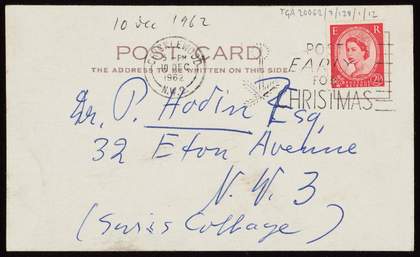 10 Dec 1962
TGA 20062/3/128/1/12
POST CARD
THE ADDRESS TO BE WRITTEN ON THIS SIDE
PM
10 DEC
1962
N.W.2
POST
EARLY
FOR
CHRISTMAS
E R
Dr. P. Hodin Esq,
32 Eton Avenue
N. W. 3
(Swiss Cottage)